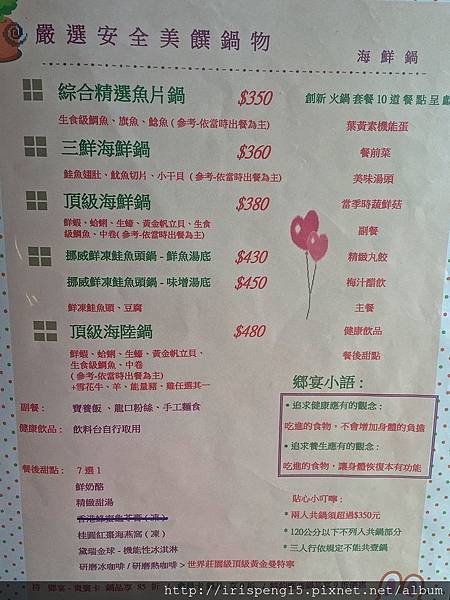 嚴選安全美饌鍋物
海鮮鍋
綜合精選魚片鍋 $350
生食級鯛魚、旗魚、鯰魚(參考-依當時出餐為主)
三鮮海鮮鍋 $360
鮭魚翅肚、魷魚切片、小干貝(參考-依當時出餐為主)
頂級海鮮鍋 $380
鮮蝦、蛤蜊、生蠔、黃金帆立貝、生食
級鯛魚、中卷(參考-依當時出餐為主)
挪威鮮凍鮭魚頭鍋-鮮魚湯底 $430
挪威鮮凍鮭魚頭鍋-味增湯底 $450
鮮凍鮭魚頭、豆腐
頂級海陸鍋 $480
鮮蝦、蛤蜊、生蠔、黃金帆立貝、
生食級鯛魚、中卷
(參考-依當時出餐為主)
+雪花牛、羊、能量豬、雞任選其一
副餐: 寶養飯、龍口粉絲、手工麵食
健康飲品: 飲料台自行取用
餐後甜點: 7選1
鮮奶酪
精緻甜湯
香港蜂蜜龜苓膏(凍)
桂圓紅棗海燕窩(凍)
黛瑞金球-機能性冰淇淋
研磨冰咖啡/研磨熱咖啡>世界莊園級頂級黃金曼特寧
創新火鍋套餐10道餐點呈獻
葉黃素機能蛋
餐前菜
美味湯頭
當季時蔬鮮菇
副餐
精緻丸餃
梅汁醋飲
主餐
健康飲品
餐後甜點
鄉宴小語:
•追求健康應有的觀念:
吃進的食物,不會增加身體的負擔
•追求養生應有的觀念:
吃進的食物,讓身體恢復本有功能
貼心小叮嚀:
*兩人共鍋須超過$350元
*120公分以下不列入共鍋部分
*三人行依規定不能共壹鍋
http://irispeng15.pixnet.net/album